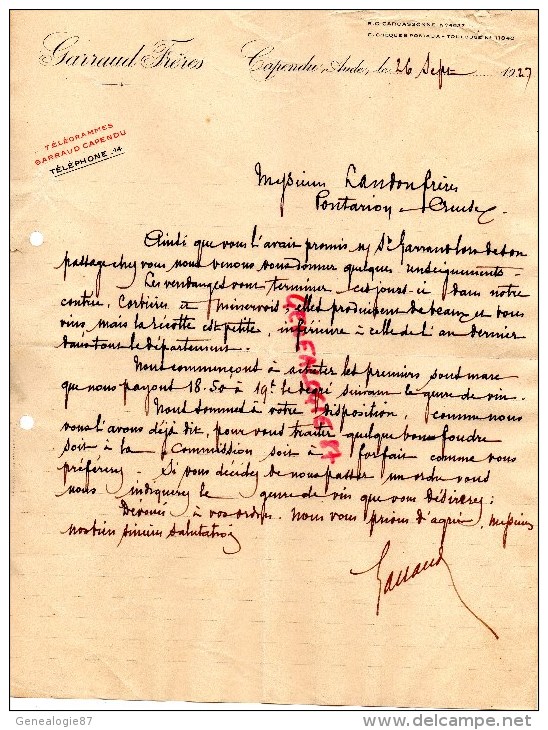 R.C. CARCASSONNE No 4637
C. CHÈQUES POSTAUX - TOULOUSE No 11040
Garraud Frères
Capendu, Aude, le 26 Sept 1927
TÉLÉGRAMMES
GARRAUD CAPENDU
TÉLÉPHONE 14
Messieurs Landon frères
Pontarion Creuse
Ainsi que vous l'avait promis Sr Garraud lors de son
passage chez vous nous venons vous donner quelques renseignements.
Les vendanges vont terminer ces jours-ci dans notre
contrée, Corbières et Minervois, elles produisent de beaux et bons
vins, mais la récolte est petite, inférieure à celle de l'an dernier
dans tout le département.
Nous commençons à acheter les premiers sous marc
que nous payons 18.50 à 19f le degré suivant le genre de vin.
Nous sommes à votre disposition, comme nous
vous l'avons déjà dit, pour vous traiter quelque bons foudre
soit à la Commission soit à forfait comme vous
préférez. Si vous décidez de nous passer un ordre vous
nous indiquerez le genre de vin que vous désirez;
Dévoués à vos ordres. Nous vous prions d'agréer, Messieurs
nos bien sincères salutations
Garraud
GENEALOGIE87
Genealogie87
delcampe.net